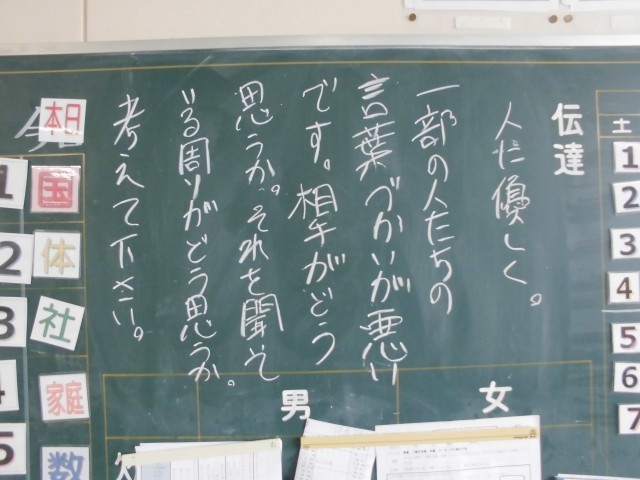 伝達
人に優しく。
一部の人たちの
言葉づかいが悪い
です。相手がどう
思うか。それを聞いて
いる周りがどう思うか。
考えて下さい。
土
1
2
3
4
5
6
7
女
男
欠
本日
1 国
2 体
3 社
4 家庭
5 数